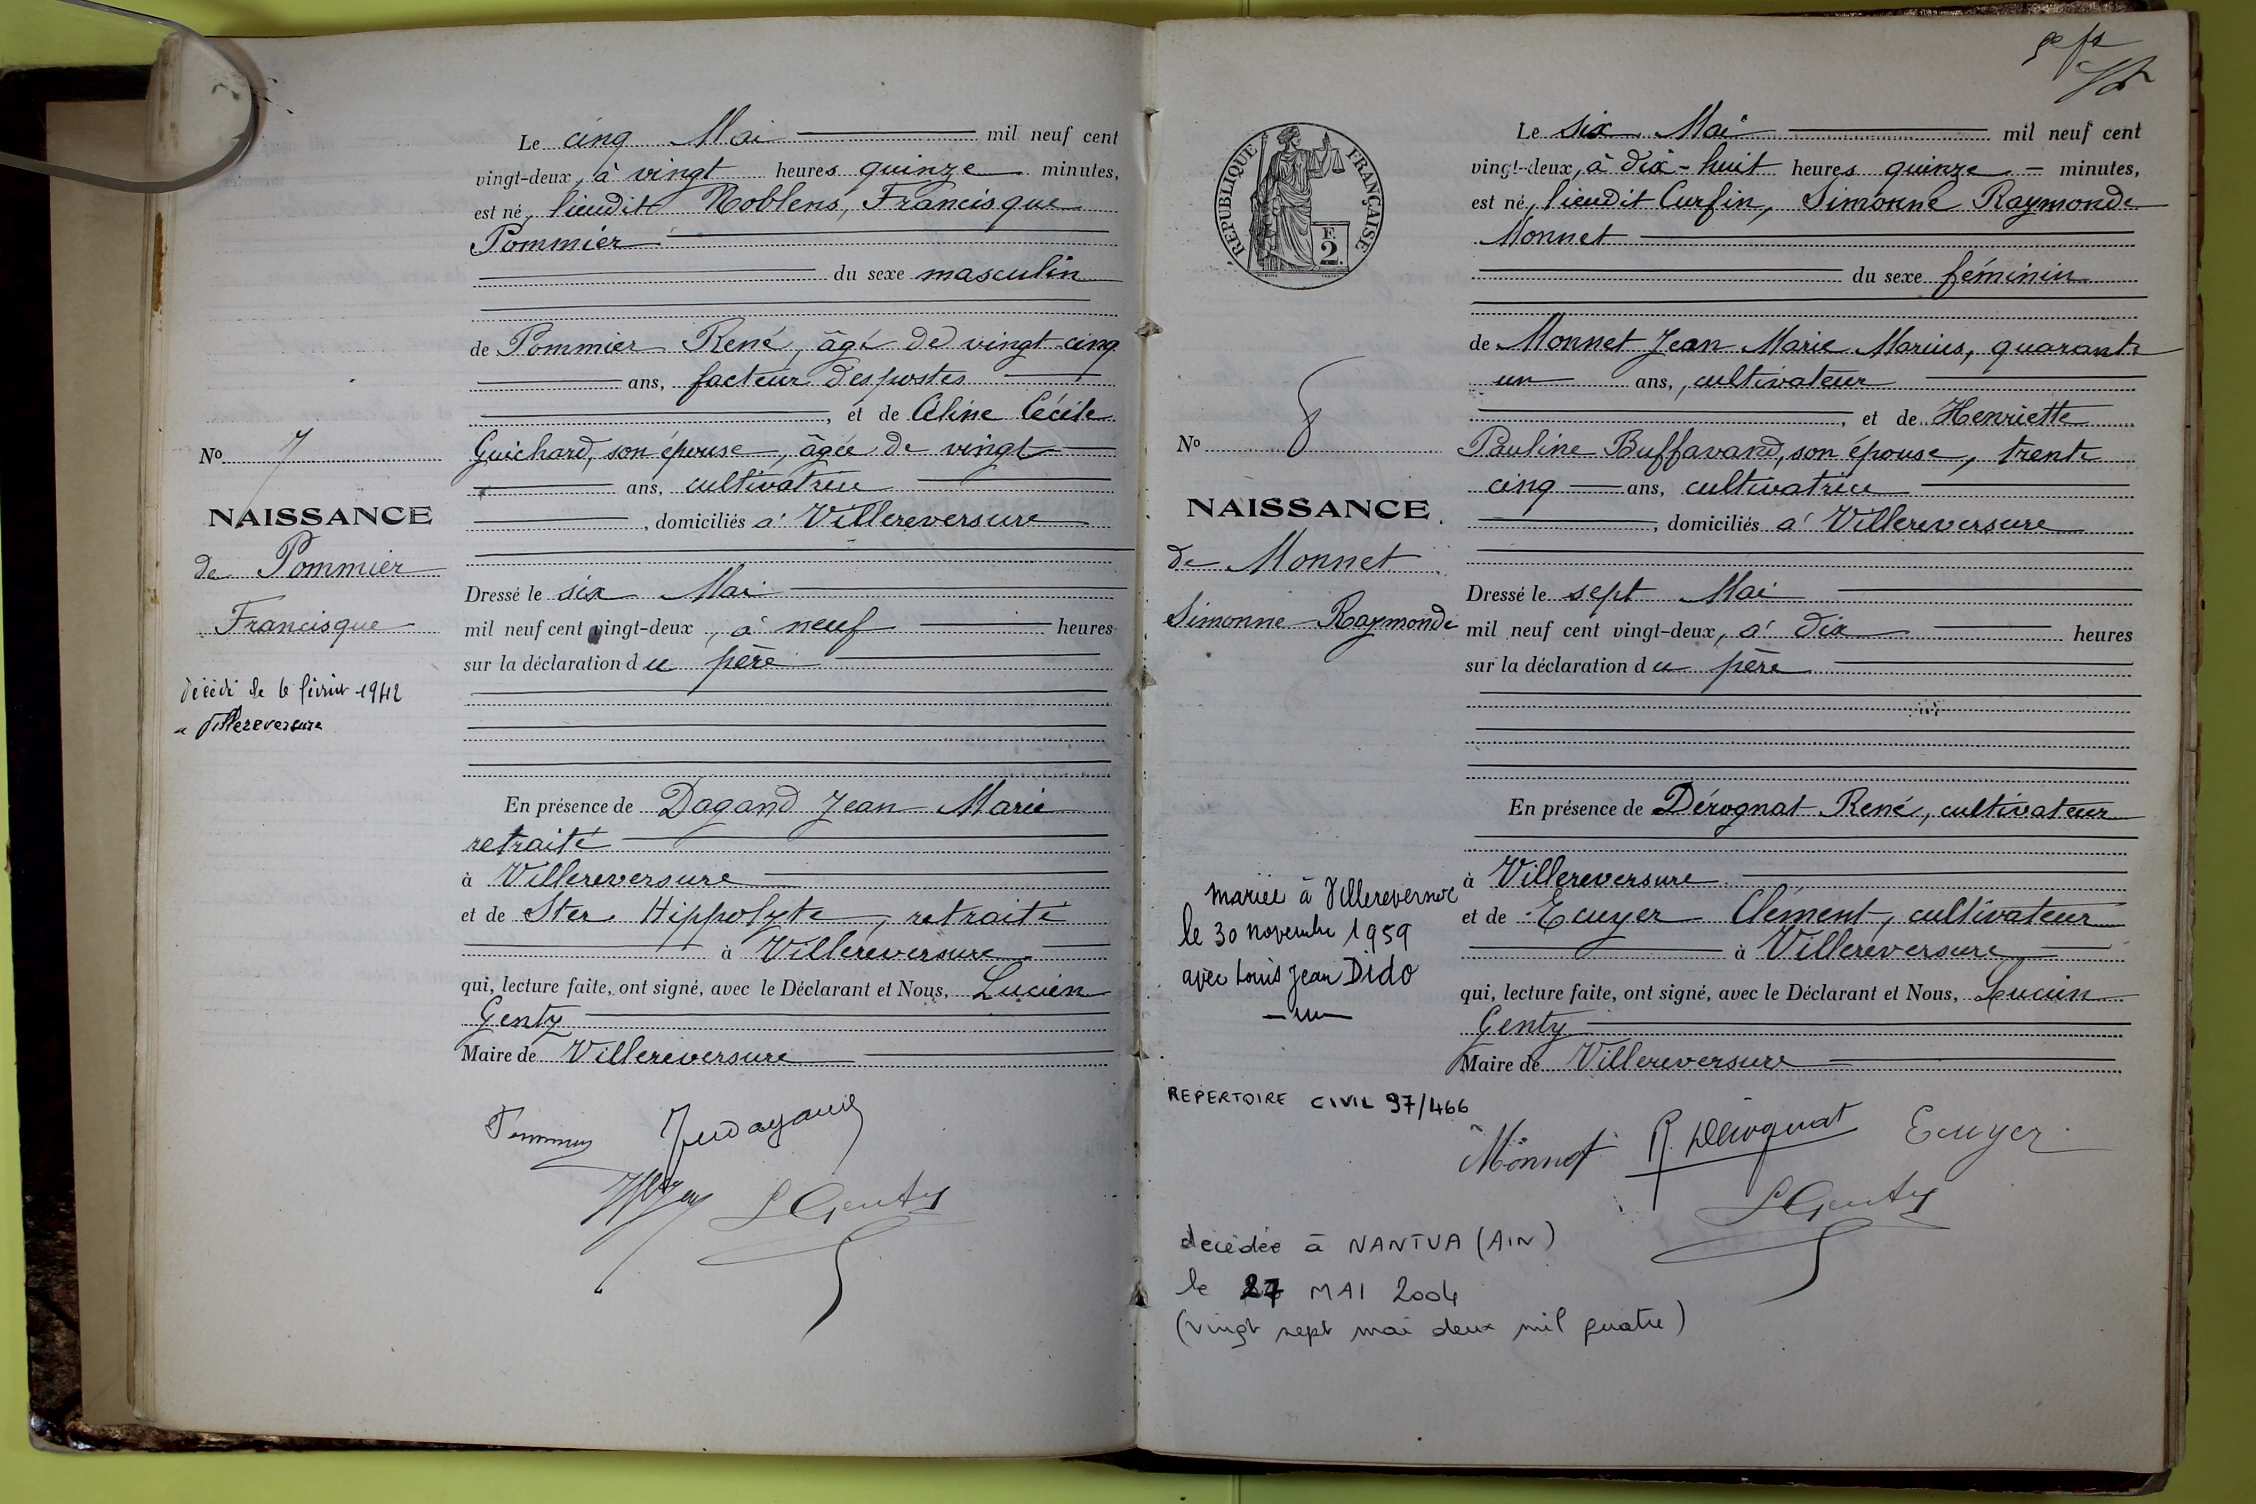 Le cinq Mai mil neuf cent
vingt-deux, à vingt heures quinze minutes,
est né, lieudit Noblens, Francisque
Pommier
du sexe masculin
de Pommier René, âgé de vingt cinq
ans, facteur des postes
, et de Céline Cécile
Guichard, son épouse, âgée de vingt
ans, cultivatrice
, domiciliés à Villereversure
Dressé le six Mai
mil neuf cent vingt-deux, à neuf heures
sur la déclaration du père
En présence de Dagand Jean Marie
retraité
à Villereversure
et de Ster Hippolyte, retraité
à Villereversure
qui, lecture faite, ont signé, avec le Déclarant et Nous, Lucien
Genty
Maire de Villereversure
No 7
NAISSANCE
de Pommier
Francisque
décédé le 6 février 1942
a Villereversure
L Genty
RÉPUBLIQUE FRANÇAISE
F.
2.
Le six Mai mil neuf cent
vingt-deux, à dix-huit heures quinze minutes,
est né, lieudit Curfin, Simonne Raymonde
Monnet
du sexe féminin
de Monnet Jean Marie Marius, quarante
un ans, cultivateur
, et de Henriette
Pauline Buffavand, son épouse, trente
cinq ans, cultivatrice
, domiciliés à Villereversure
Dressé le sept Mai
mil neuf cent vingt-deux, à dix heures
sur la déclaration du père
En présence de Dérognat René, cultivateur
à Villereversure
et de Ecuyer Clément, cultivateur
à Villereversure
qui, lecture faite, ont signé, avec le Déclarant et Nous, Lucien
Genty
Maire de Villereversure
No 8
NAISSANCE
de Monnet
Simonne Raymonde
mariée à Villereversure
le 30 novembre 1959
avec Louis Jean Dido
REPERTOIRE CIVIL 97/466
Monnet R. Dérognat Ecuyer
L Genty
décédée à NANTUA (AIN)
le 27 MAI 2004
(vingt sept mai deux mil quatre)